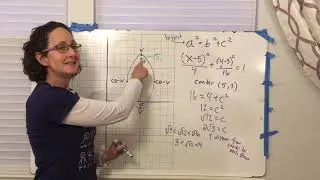 a² = b² + c²
(x-5)²/4 + (y-3)²/16 = 1
center (5,3)
16 = 4 + c²
12 = c²
√12 = c
2√3 = c
√9 < √12 < √16
3 < √12 < 4
co-v
co-v
v